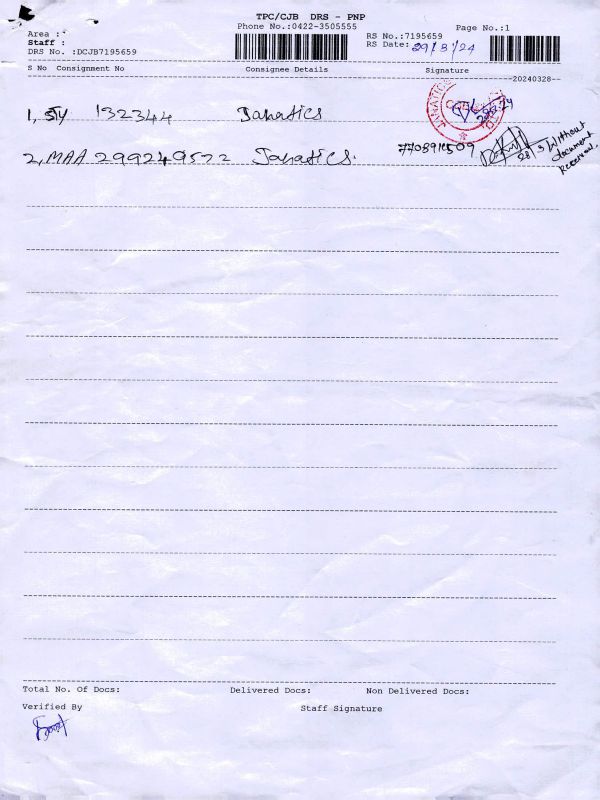 TPC/CJB DRS - PNP
Phone No.:0422-3505555
Page No.:1
Area :
RS No.:7195659
Staff :
RS Date: 29/3/24
DRS No. :DCJB7195659
S No Consignment No Consignee Details Signature
20240328
1, STY 132344 Janatics
2, MAA 299249522 Janatics.
28/3 Without
document
Received.
Total No. Of Docs: Delivered Docs: Non Delivered Docs:
Verified By Staff Signature